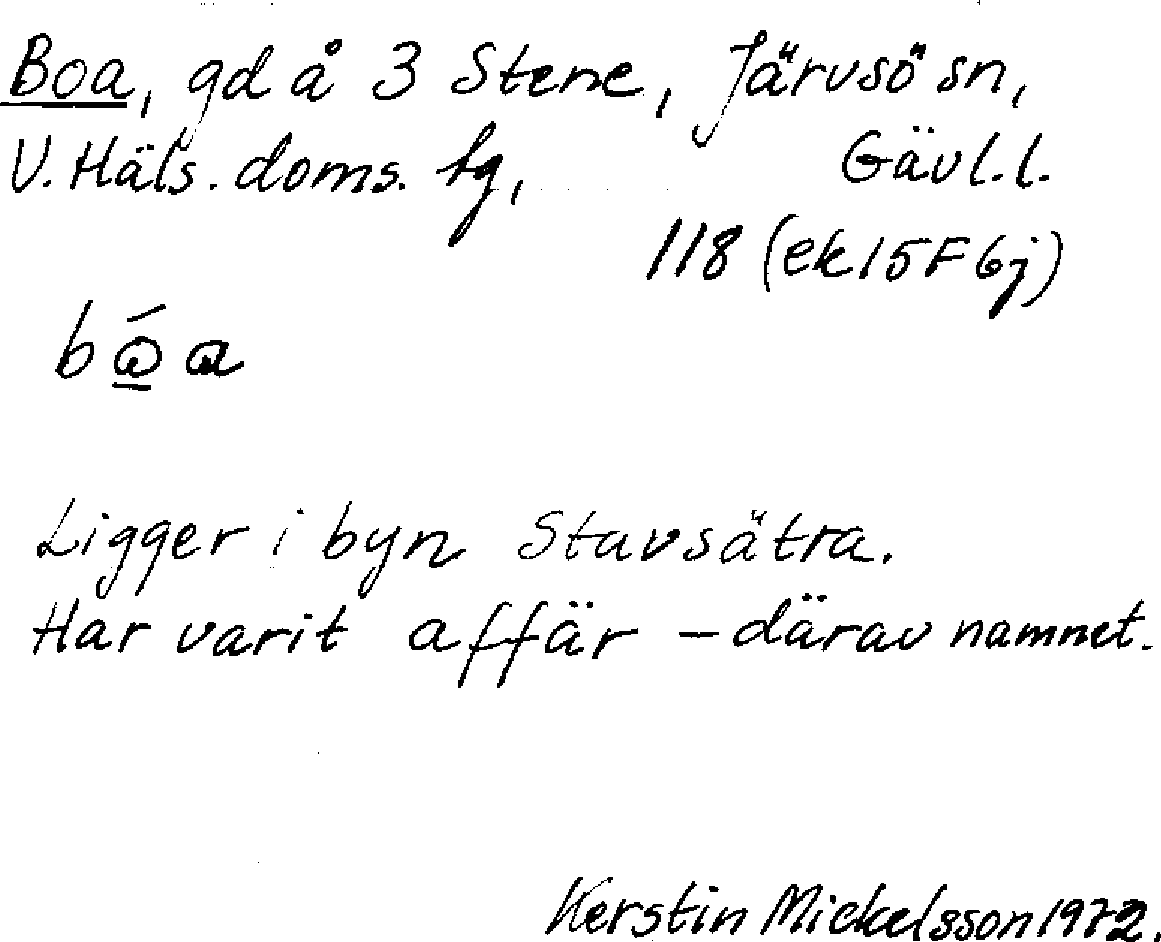 Boa, gd å 3 Stene, Järvsö sn,
V. Häls. doms. tg, Gävl. l.
118 (ek 15F 6j)
Ligger i byn Stavsätra.
Har varit affär – därav namnet.
Kerstin Mickelsson 1972.